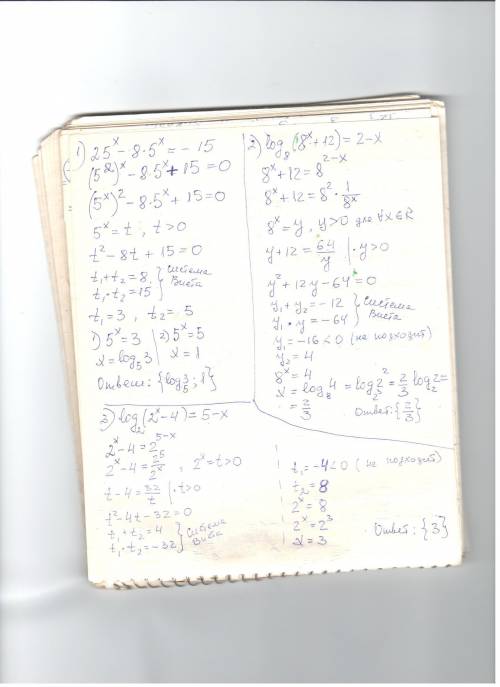 1) 25^x - 8·5^x = - 15
(5^2)^x - 8·5^x + 15 = 0
(5^x)^2 - 8·5^x + 15 = 0
5^x = t, t>0
t^2 - 8t + 15 = 0
t_1 + t_2 = 8
t_1 · t_2 = 15 } система Виета
t_1 = 3, t_2 = 5
1) 5^x = 3 | 2) 5^x = 5
x = log_5 3 | x = 1
Ответ: {log_5 3; 1}
2) log_8 (8^x + 12) = 2-x
8^x + 12 = 8^{2-x}
8^x + 12 = 8^2 · 1/8^x
8^x = y, y>0 для ∀x∈R
y + 12 = 64/y | · y>0
y^2 + 12y - 64 = 0
y_1 + y_2 = -12
y_1 · y = -64 } система Виета
y_1 = -16 < 0 (не подходит)
y_2 = 4
8^x = 4
x = log_8 4 = log_{2^3} 2^2 = 2/3 log_2 2 =
= 2/3
Ответ: {2/3}
3) log_2 (2^x - 4) = 5-x
2^x - 4 = 2^{5-x}
2^x - 4 = 2^5/2^x, 2^x = t>0
t - 4 = 32/t | · t>0
t^2 - 4t - 32 = 0
t_1 + t_2 = 4
t_1 · t_2 = -32 } система Виета
t_1 = -4 < 0 (не подходит)
t_2 = 8
2^x = 8
2^x = 2^3
x = 3
Ответ: {3}